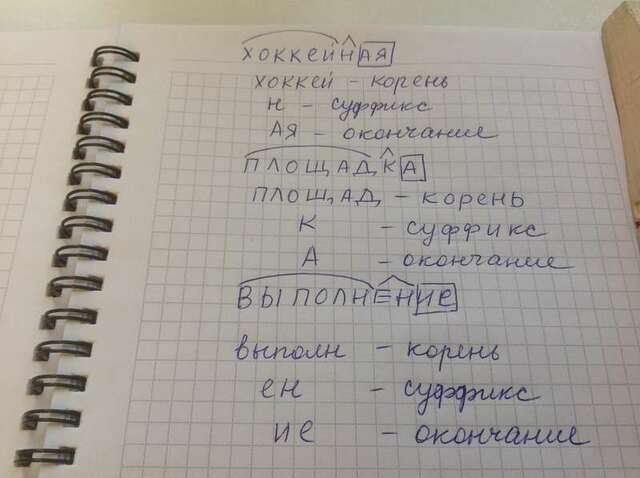 ХОККЕЙНАЯ
ХОККЕЙ – корень
Н – суффикс
АЯ – окончание
ПЛОЩАДКА
ПЛОЩАД – корень
К – суффикс
А – окончание
ВЫПОЛНЕНИЕ
выполн – корень
ен – суффикс
ие – окончание